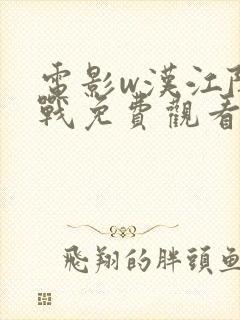 電影w漢江
戰免費觀看
飛翔的胖頭魚